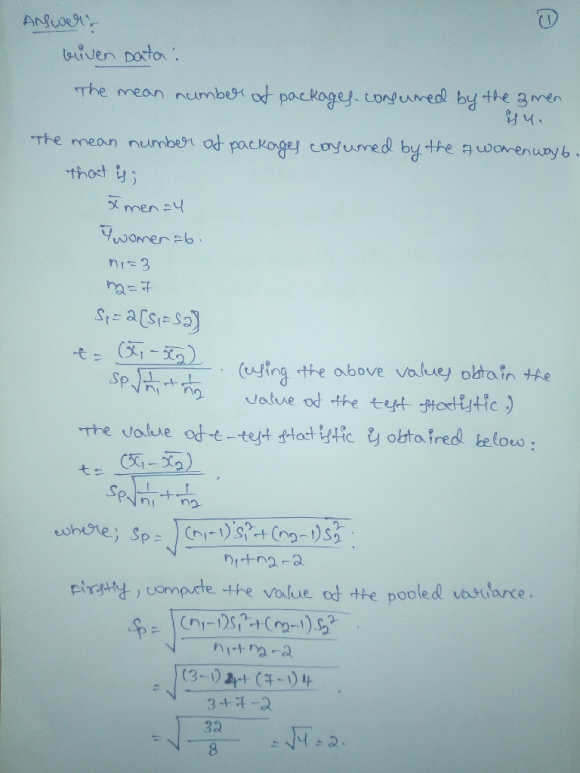 Answer:- ①
Given Data:
The mean number of packages consumed by the 3 men is 4.
The mean number of packages consumed by the 7 women was 6.
That is;
x̄ men = 4
ȳ women = 6.
n₁ = 3
n₂ = 7
S₁ = 2 [S₁ = S₂]
t = (x̄₁ - x̄₂) / Sp √(1/n₁ + 1/n₂) . (using the above values obtain the
value of the test statistic.)
The value of t-test statistic is obtained below:
t = (x̄₁ - x̄₂) / Sp √(1/n₁ + 1/n₂) .
where; Sp = √((n₁-1)S₁² + (n₂-1)S₂² / n₁+n₂-2) .
Firstly, compute the value of the pooled variance.
Sp = √((n₁-1)S₁² + (n₂-1)S₂² / n₁+n₂-2) .
= √((3-1)4 + (7-1)4 / 3+7-2) .
= √(32/8) = √4 = 2.